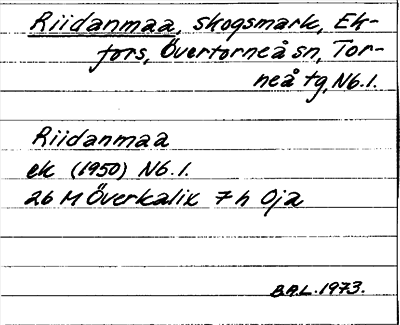 Riidanmaa, skogsmark, Ek-
fors, Övertorneå sn, Tor-
neå tg, Nb.l.
Riidanmaa
ek (1950) Nb.l.
26 M Överkalix 7 h Oja
B.R.L. 1973.